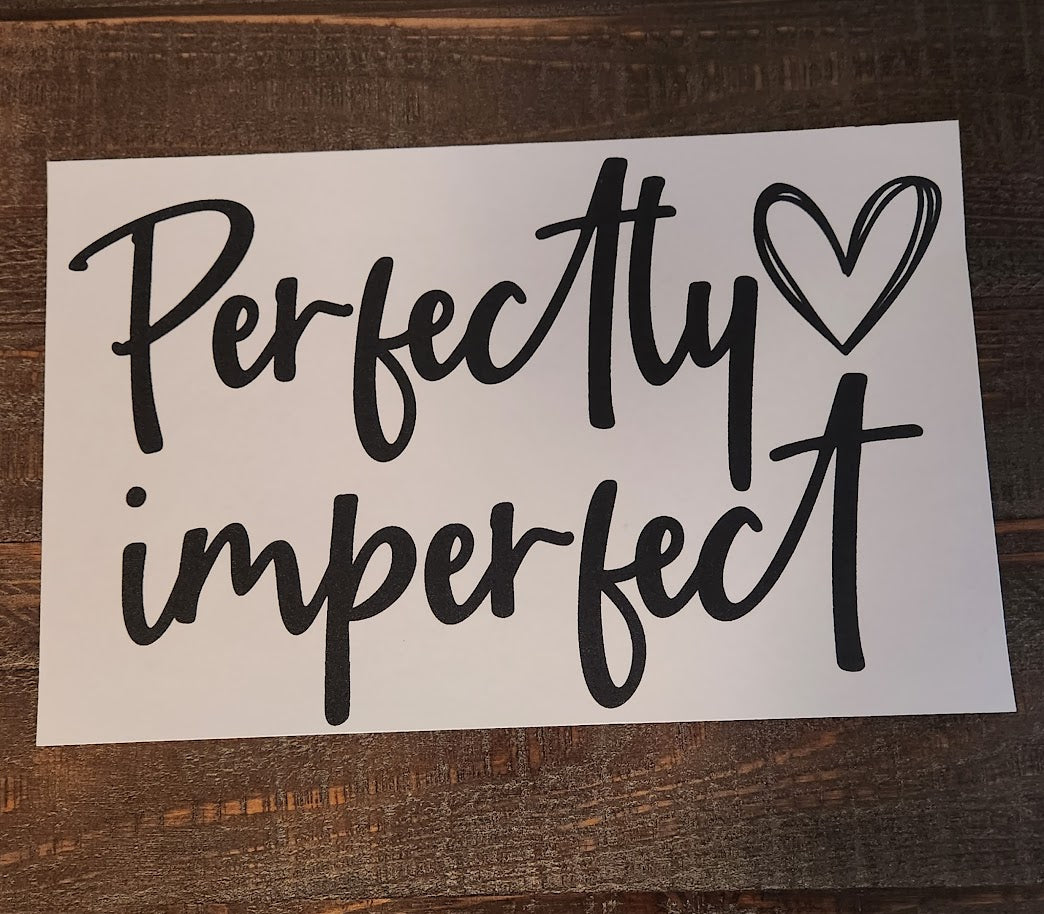 Perfectly
imperfect